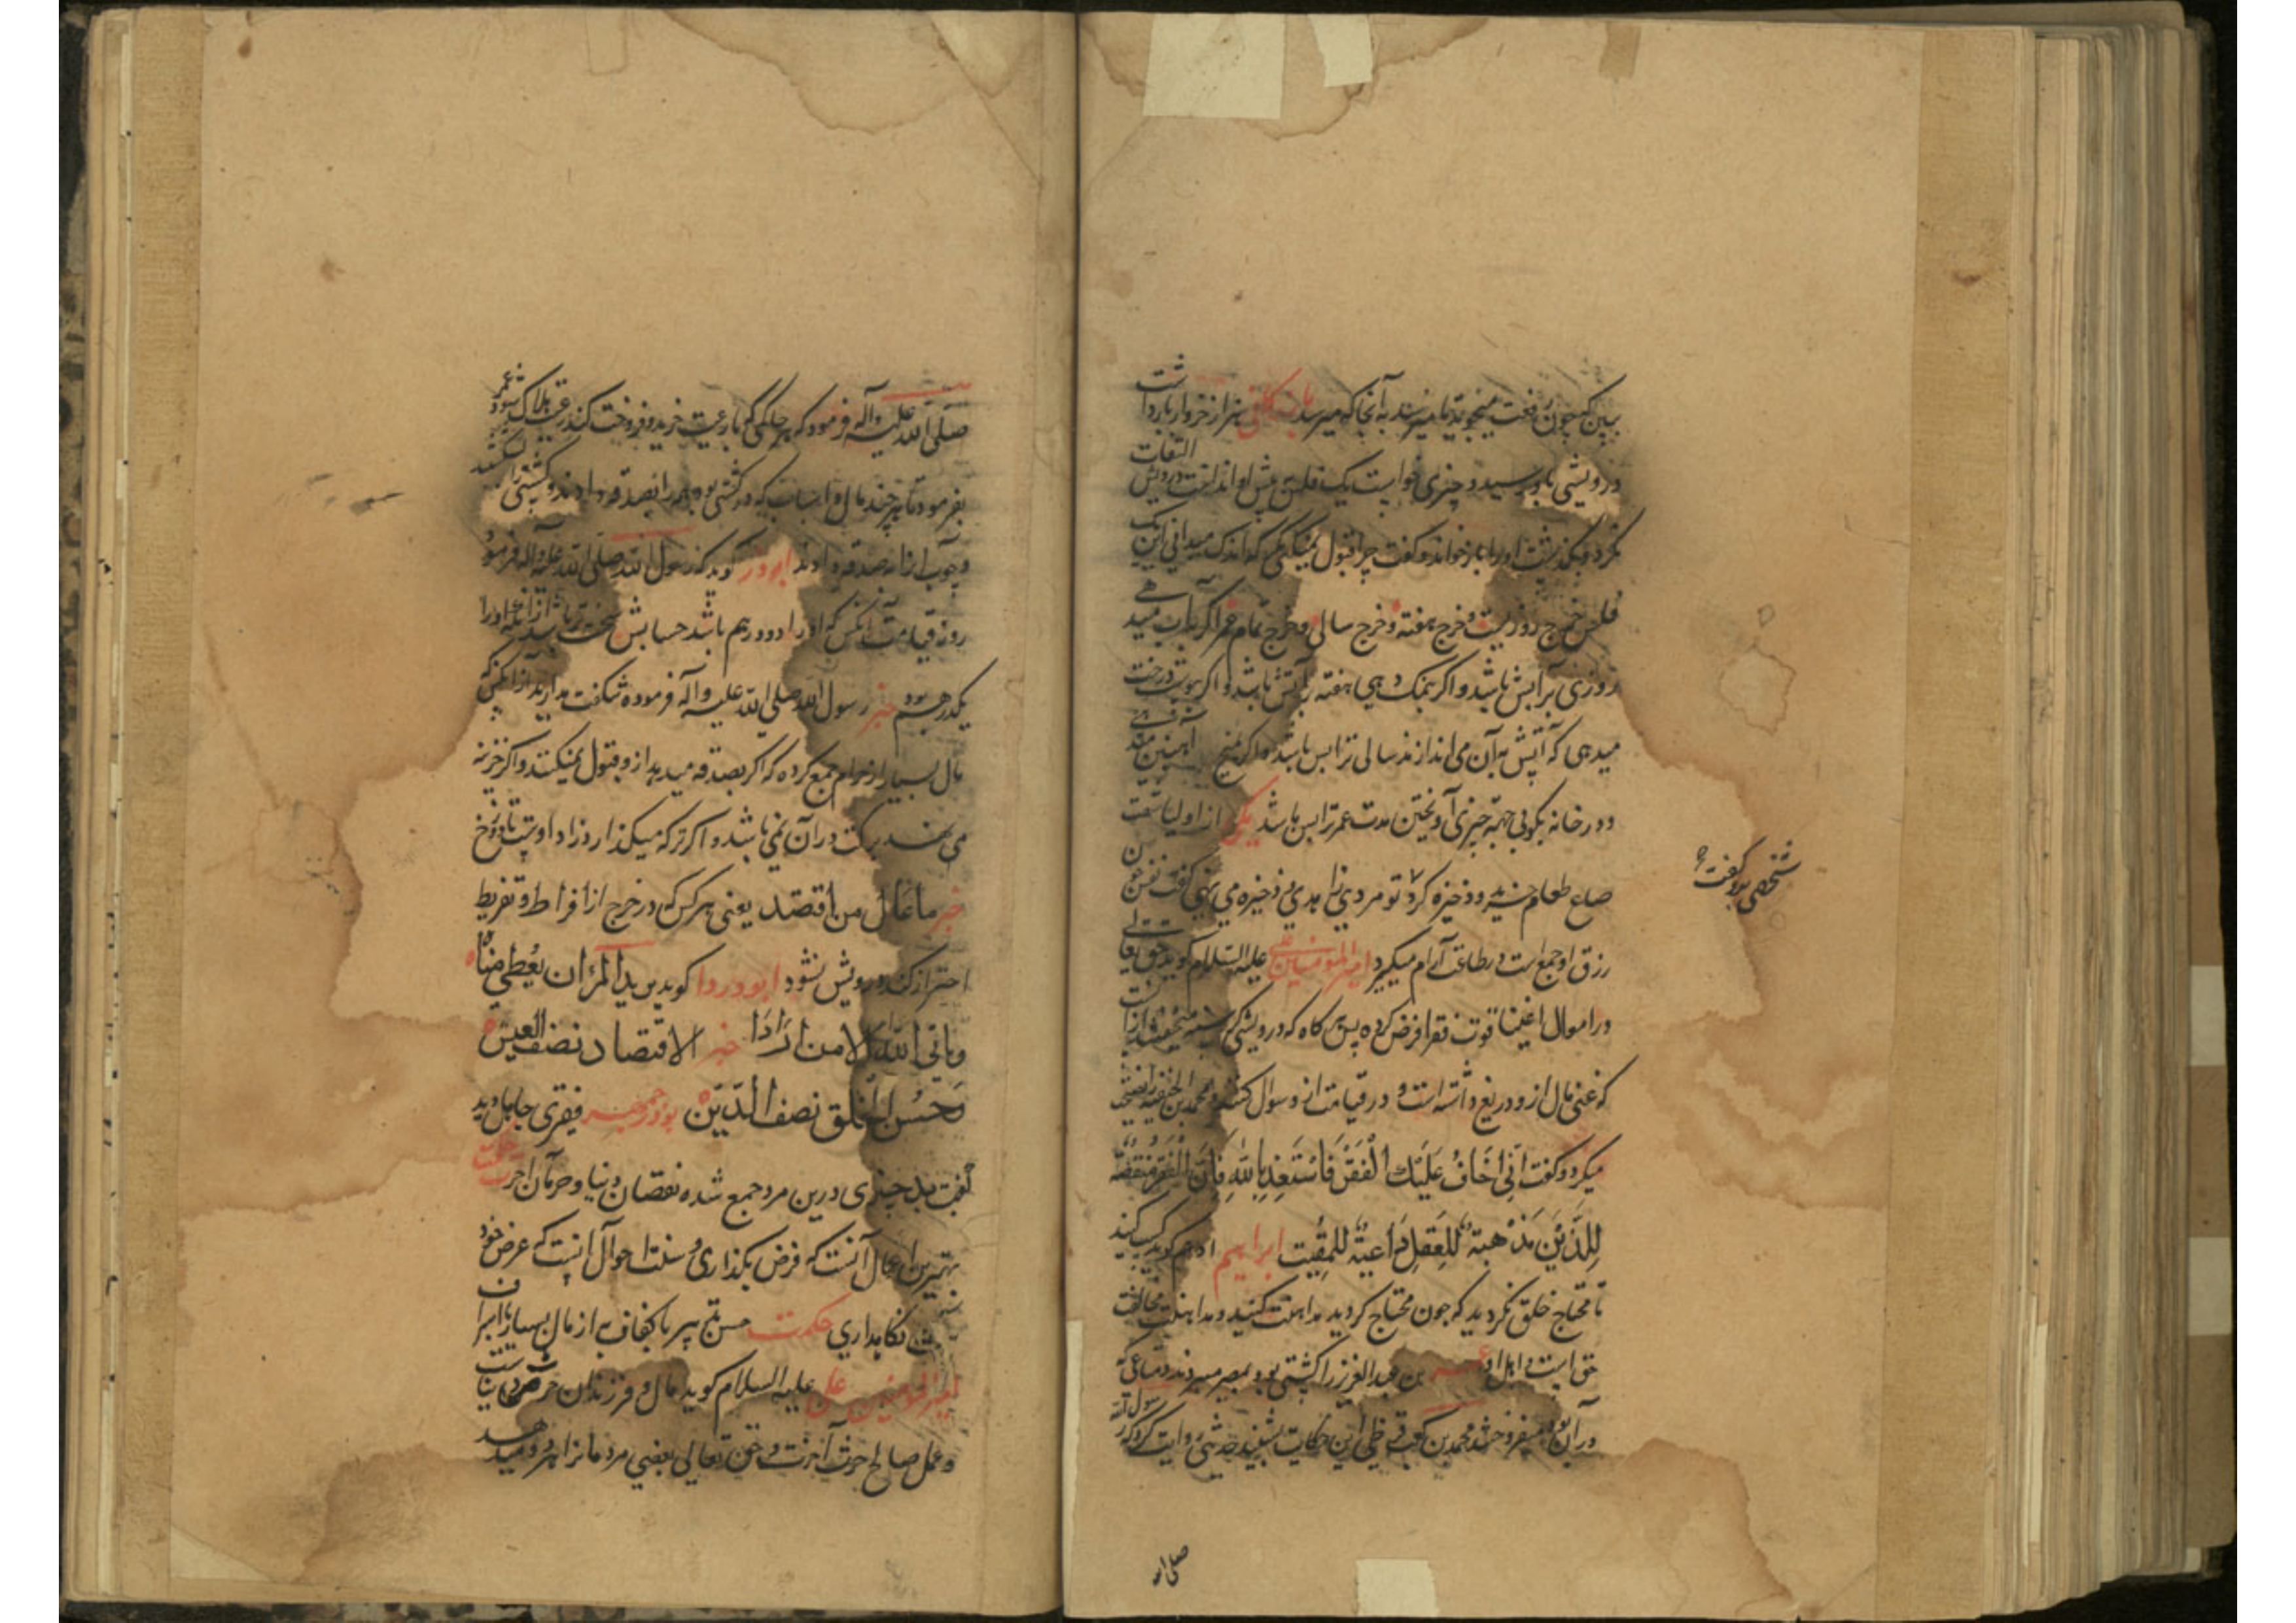 ببین که چون رفعت میجویند تا میرسند به آنجا که میرسد هزار خروار بار داشت
درویشی باو رسید و چیزی خواست یک فلس پیش او انداخت درویش التفات
نکرد و بگذشت او را باز خواند و گفت چرا قبول نمیکنی که اندک میدانی این یک
فلس خرج روزیست و خرج هفته و خرج سالی و خرج تمام عمر اگر بآب میدهی
روزی ترا بس باشد و اگر بنمک دهی هفته ترا بس باشد و اگر بپوست درخت
میدهی که آتش به آن می اندازند سالی ترا بس باشد و اگر بمیخ آهنین میدهی
و در خانه بکوبی جهة چیزی آویختن مدت عمر ترا بس باشد یکی از اولیا شصت
صاع طعام خرید و ذخیره کرد تو مردی زاهدی ذخیره می نهی گفت نفس چون
شخصی بدو گفت
رزق او جمع است در طاعت آرام میگیرد امیر المؤمنین علی علیه السلام گوید حق تعالی
در اموال اغنیا قوت فقرا فرض کرده پس هر گاه که درویشی گرسنه میخفتد از آنست
که غنی مال ازو دریغ داشته است و در قیامت ازو سوال کنند محمد بن الحنفیه را نصیحت
میکرد و گفت انی اخاف علیک الفقر فاستعذ بالله فان الفقر منقصة
للدین مذهبة للعقل داعیة للمقت ابراهیم ادهم گوید کسب کنید
تا محتاج خلق نگردید که چون محتاج گردید مداهنت کنید و مداهنت مخالفت
حق است بن عبد العزیز را کشتی بود بمصر میبردند و متاعی که
در آن بود میفروختند محمد بن کعب قرظی این حکایت بشنید حدیثی روایت کرد که رسول الله
صلی الله
صلی الله علیه و آله فرمود که هر حاکمی که با رعیت خرید و فروخت کند رعیت هلاک شود عمر
بفرمود تا هر چند مال و اسباب که در کشتی بود همه را بصدقه دادند و کشتی را بشکستند
و چوب آنرا بصدقه دادند ابوذر گوید که رسول الله صلی الله علیه و آله فرمود
روز قیامت آنکس که او را دو درهم باشد حسابش سخت تر باشد از آنکه او را
یکدرهم بود خبر رسول الله صلی الله علیه و آله فرموده شگفت مدارید از آنکس که
مال بسیار از حرام جمع کرده که اگر بصدقه میدهد ازو قبول نمیکنند و اگر خزینه
می نهد برکت در آن نمی باشد و اگر ترکه میگذارد زاد اوست تا دوزخ
خبر ما عال من اقتصد یعنی هر کس که در خرج از افراط و تفریط
احتراز کند درویش نشود ابو دردا گوید یرید المرء ان یعطی مناه
و یأبی الله الا من ارادا خبر الاقتصاد نصف العیش
و حسن الخلق نصف الدین بوذرجمهر فقیری جاهل دید
گفت بد چیزی درین مرد جمع شده نقصان دنیا و حرمان آخرت
بهترین اعمال آنست که فرض بگذاری و سنت احوال آنست که عرض خود
نگاهداری حکمت از مال بسیار
امیر المؤمنین علی علیه السلام گوید مال و فرزندان حرث دنیاست
و عمل صالح حرث آخرت و حق تعالی بعضی مردمانرا هر دو میدهد